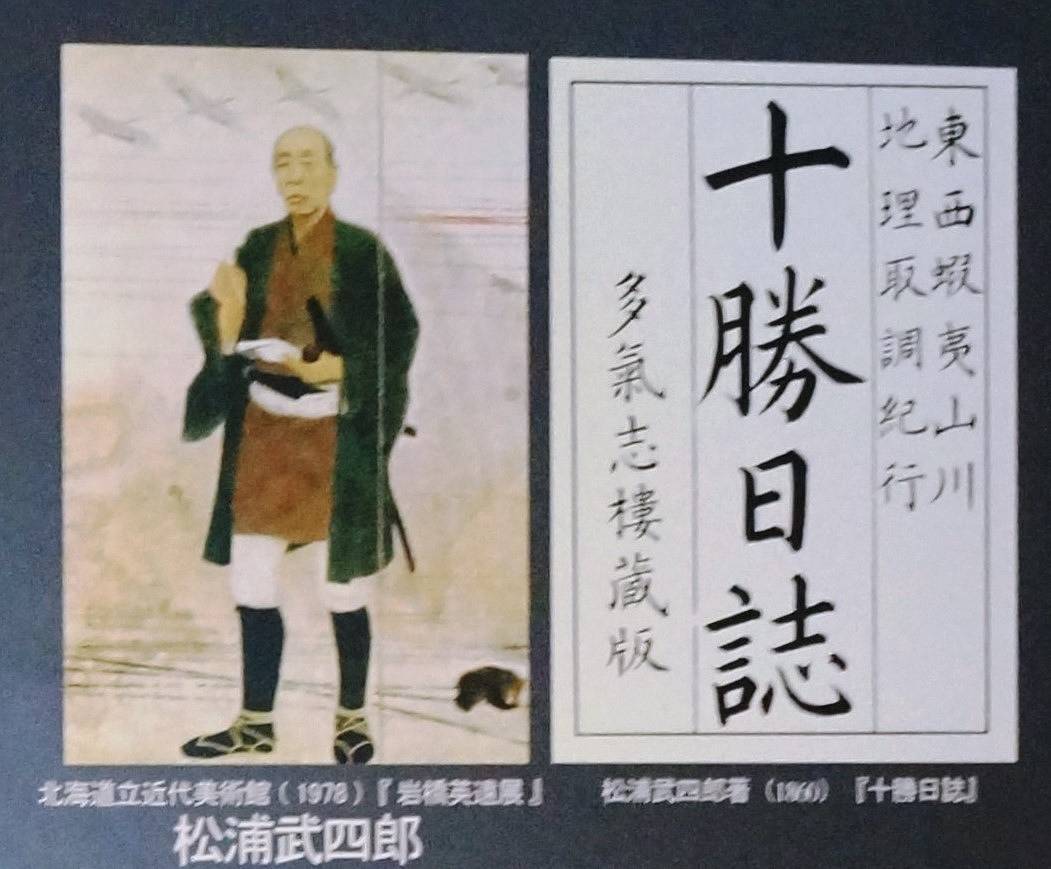 東西蝦夷山川
地理取調紀行
十勝日誌
多氣志樓蔵版
北海道立近代美術館(1978)『岩橋英遠展』
松浦武四郎著(1860)『十勝日誌』
松浦武四郎